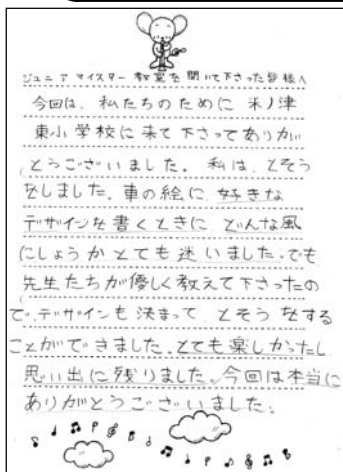 ジュニアマイスター教室を開いて下さった皆様へ
今回は、私たちのために米ノ津
東小学校に来て下さってありが
とうございました。私は、とそう
をしました。車の絵に、好きな
デザインを書くときに、どんな風
にしようかとても迷いました。でも
先生たちが優しく教えて下さったの
で、デザインも決まって、とそうをする
ことができました。とても楽しかったし
思い出に残りました。今回は本当に
ありがとうございました。